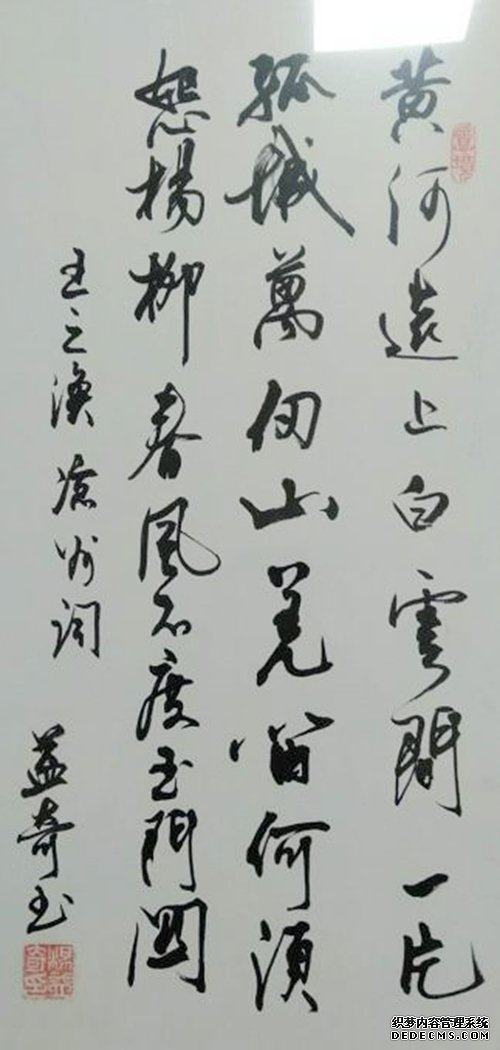 黄河遠上白雲間一片
孤城萬仞山羌笛何須
怨楊柳春風不度玉門關
王之渙涼州詞
益奇书
楊益奇印
织梦内容管理系统
DEDECMS.COM